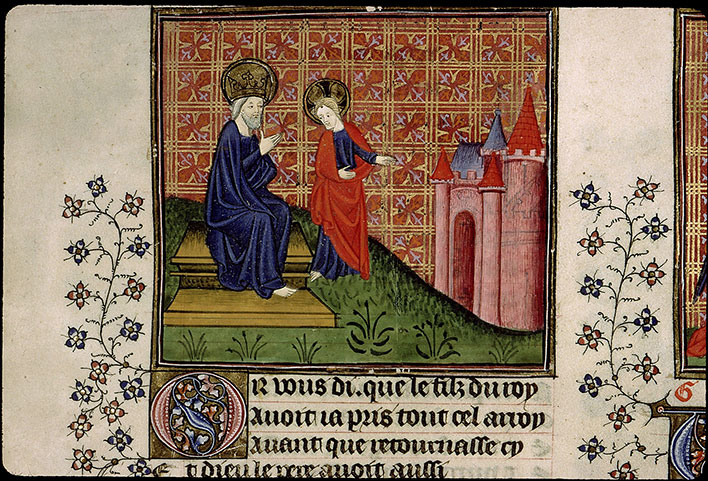 OR vous di. que le filz du roy
Avoit ia pris tout cel arroy
Avant que retournasse cy
Et dieu le pere avoit aussi
G